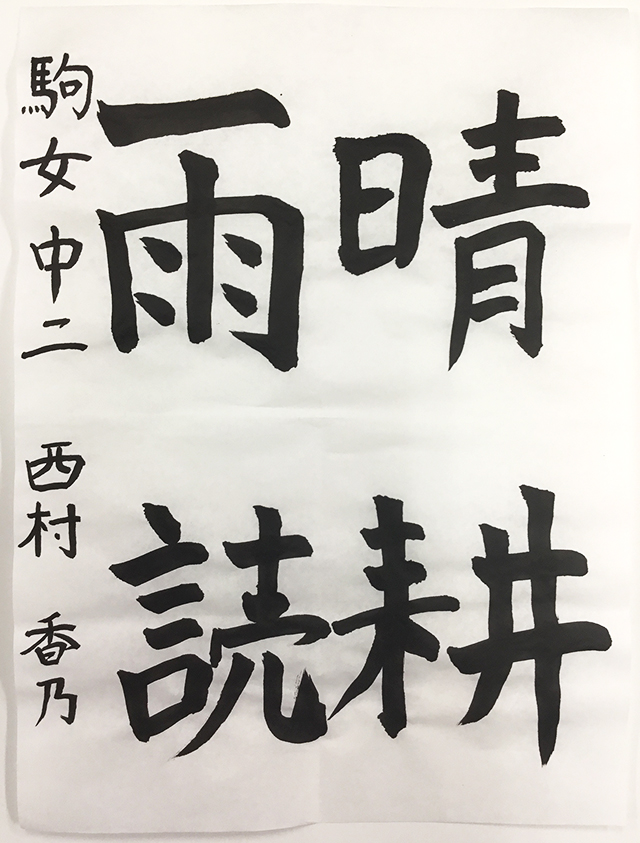 晴耕
雨読
駒女中二 西村 香乃